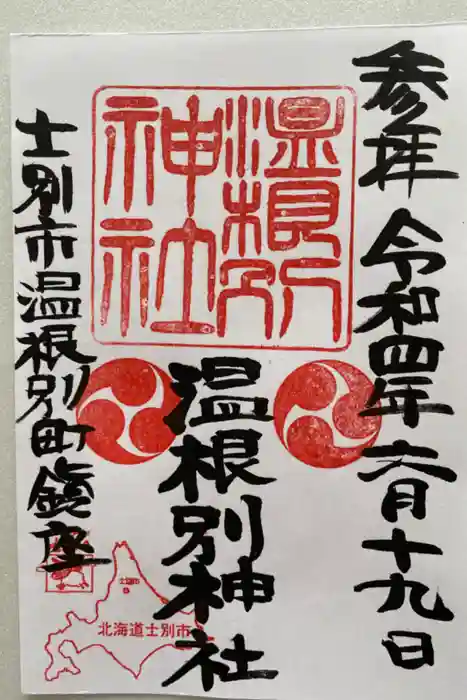 参拝 令和四年六月十九日
温根別
神社
温根別神社
士別市温根別町鎮座
北海道士別市